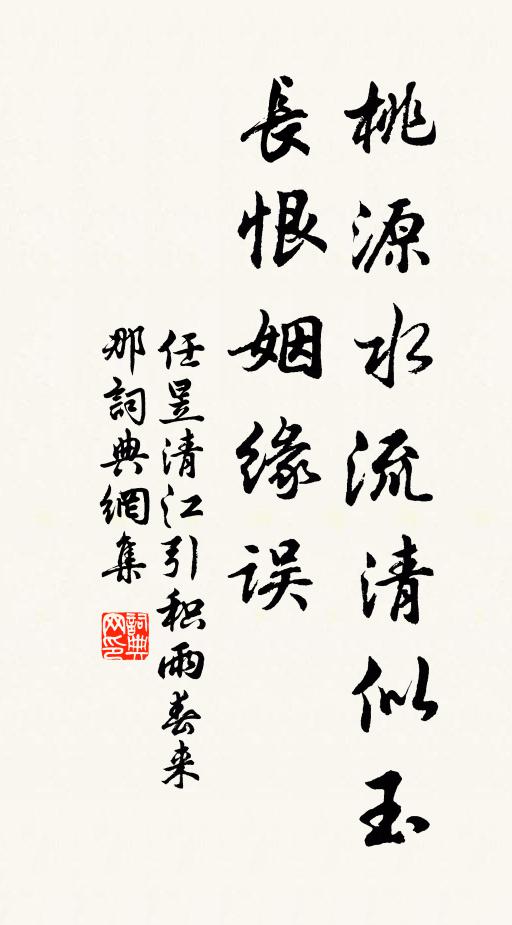 桃源水流清似玉
長恨姻缘误
任昱清江引积雨春来
那詞典網集
詞典
网印